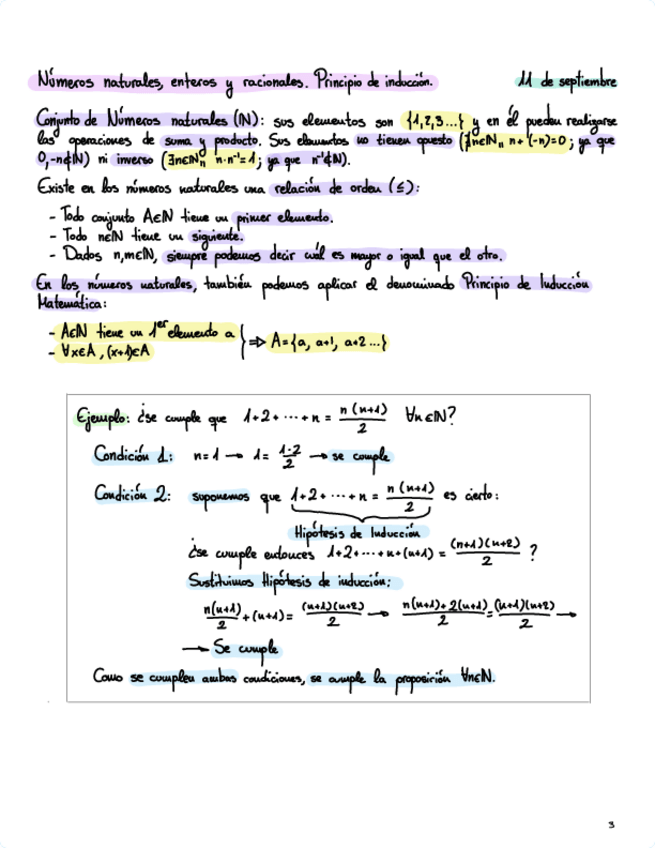 Números naturales, enteros y racionales. Principio de inducción. 11 de septiembre
Conjunto de Números naturales (ℕ): sus elementos son {1,2,3...} y en él pueden realizarse
las operaciones de suma y producto. Sus elementos no tienen opuesto (∄n∈ℕ,, n+(-n)=0; ya que
0,-n∉ℕ) ni inverso (∃n∈ℕ,, n·n⁻¹=1; ya que n⁻¹∉ℕ).
Existe en los números naturales una relación de orden (≤):
- Todo conjunto A∈ℕ tiene un primer elemento.
- Todo n∈ℕ tiene un siguiente.
- Dados n,m∈ℕ, siempre podemos decir cuál es mayor o igual que el otro.
En los números naturales, también podemos aplicar el denominado Principio de Inducción
Matemática:
- A∈ℕ tiene un 1er elemento a
- ∀x∈A, (x+1)∈A } => A={a, a+1, a+2...}
Ejemplo: ¿se cumple que 1+2+...+n = n(n+1)/2 ∀n∈ℕ?
Condición 1: n=1 → 1= 1·2/2 → se cumple
Condición 2: suponemos que 1+2+...+n = n(n+1)/2 es cierto:
Hipótesis de Inducción
¿se cumple entonces 1+2+...+n+(n+1) = (n+1)(n+2)/2 ?
Sustituimos Hipótesis de inducción:
n(n+1)/2 + (n+1) = (n+1)(n+2)/2 → n(n+1)+2(n+1)/2 = (n+1)(n+2)/2 →
→ Se cumple
Como se cumplen ambas condiciones, se cumple la proposición ∀n∈ℕ.
3